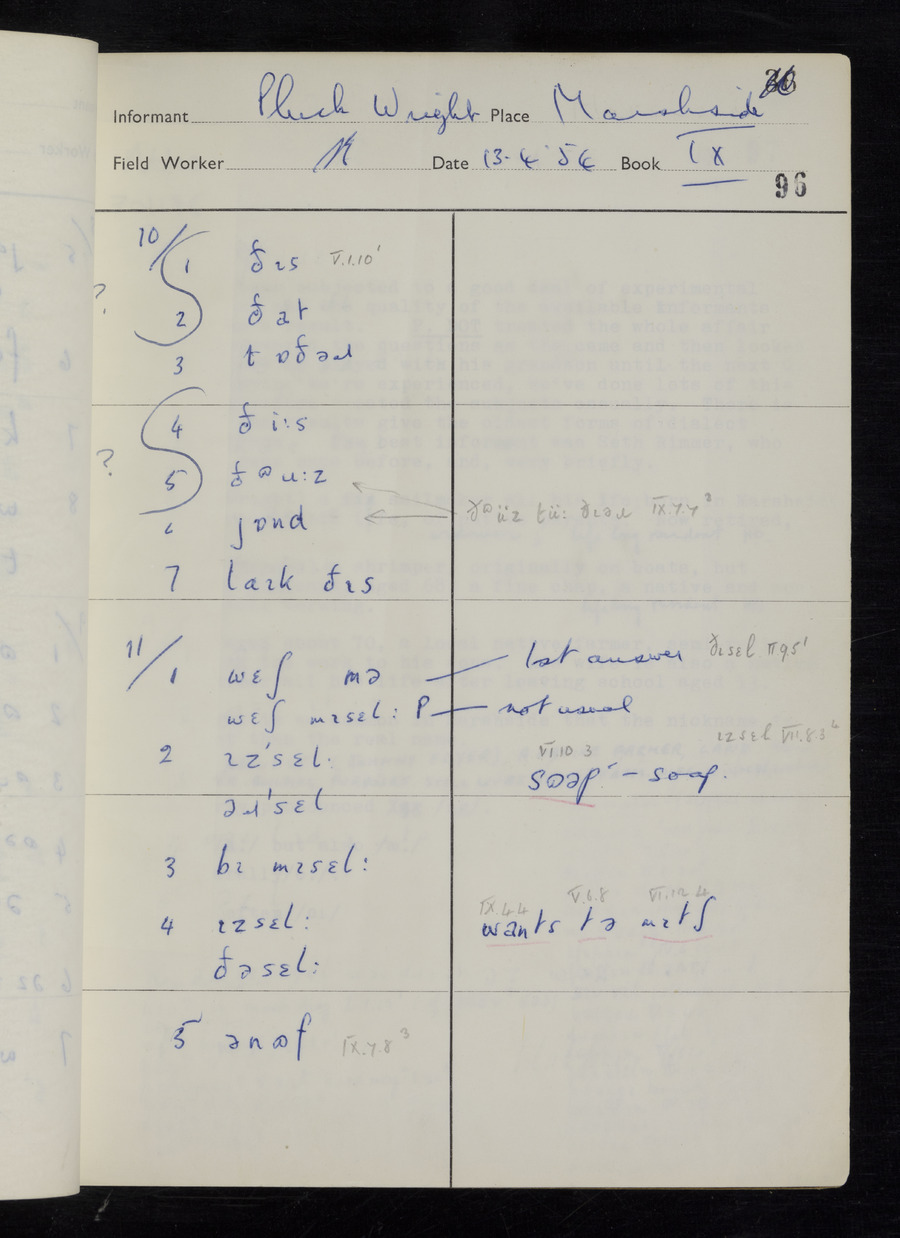 Informant Pluck Wright Place Marshside
Field Worker Date 13·4·54 Book IX
96
10/
1 ðɪs V.I.10¹
?
2 ðat
3 t ɒðəɹ
4 ði:s
?
5 ðɒu:z
6 jɒnd
IX.7.7²
7 laɪk ðɪs
11/
1 wɛʃ mə — 1st answer ðɪsɛl II 9 5¹
wɛʃ mɪsɛl: P — not usual
ɪzsɛl VII.8.3⁴
2 ɪz'sɛl: VI 10 3
sɒəp' – soap.
əɹ'sɛl
3 bɪ mɪsɛl:
4 ɪzsɛl: IX.4.4 V.6.8 VI.12 4
wants tə
ðəsɛl:
5 ənɒf IX.7.8³